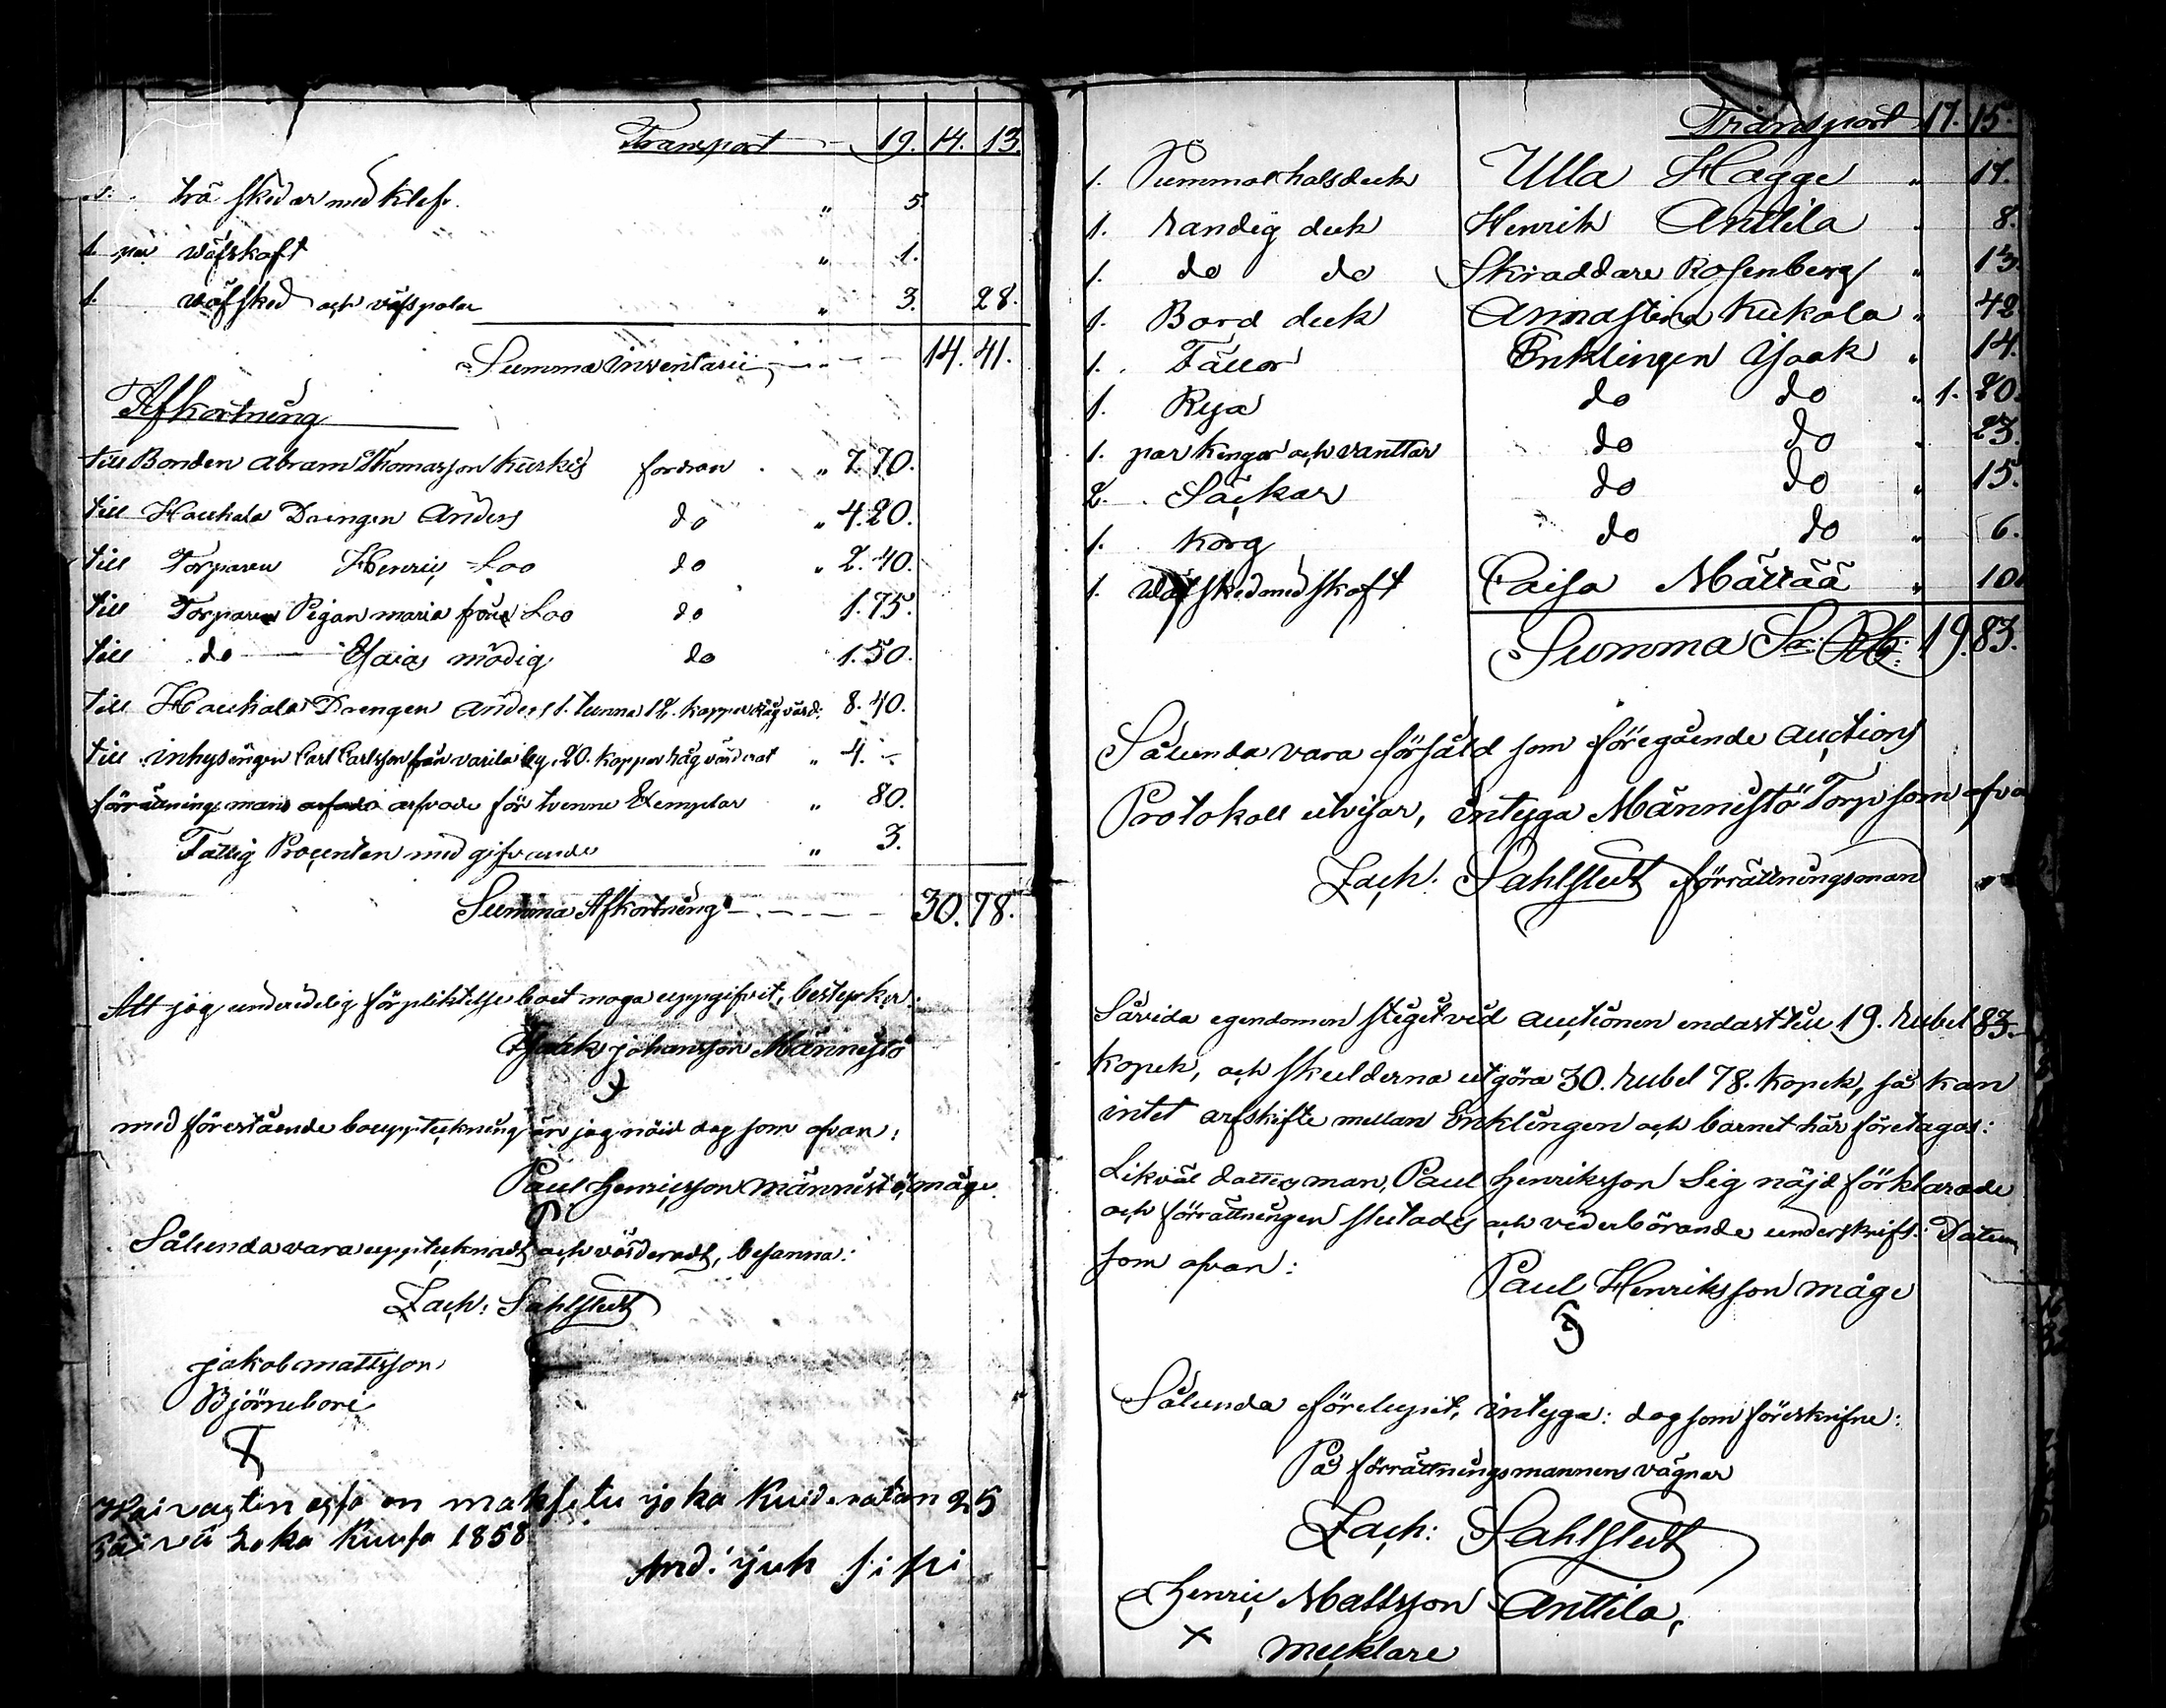 Transport 19. 14. 13.
trä skedar med klef. " 5
1. par väfskaft " 1.
1. väfsked och väfspolar " 3. 28.
Summa inventarii 14. 41.
Afkortning
till Bonden Abram Thomasson Kurkis fordran " 7.70.
till Haukala Drengen Anders do " 4.20.
till Torparen Henric Loo do " 2.40.
till Torpare Pigan maria Loo do 1.75.
till do Esaias mödig do 1.50.
till Haukala Drengen Anders 1. tunna 12. kappar råg värd: 8.40.
till inhysingen Carl Carlsson från varila by, 20. kappar råg värderat " 4. -
förrättnings mans arfvode för tvenne Exemplar " 80.
Fattig Procenten med gifvande " 3.
Summa Afkortning 30. 78.
Att jag under edelig förpliktelse boet noga uppgifvit, bestyrker:
Isaak johansson Männistö
med förestående bouppteckning är jag nöid dag som ofvan:
Paul Henricsson männistö, måge
Sålunda vara upptecknadt och värderadt, besanna:
Zach: Sahlstedt
jakob mattsson
Björnebori
on maksetu joka Kuideratan 25
päivä loka Kuusa 1858
And: juh sipi
Transport 17. 15.
1. Pummol halsduk Ulla Hagge " 17.
1. randig duk Henrik Anttila " 8.
1. do do Skraddare Rosenberg " 13.
1. Bord duk Annastina Kukola " 42
1. Fällor Enklingen Isaak " 14.
1. Rya do do " 1. 20.
1. par kengor och vanttar do do " 23.
2. Säckar do do " 15.
1. korg do do " 6.
1. väfsked med skaft Caisa Mättää " 10.
Summa Sr. Rb: 19. 83.
Sålunda vara försåld som föregående auctions
Protokoll utvisar, intyga Männistö Torp som ofva
Zach. Sahlstedt förrättningsman
Såvida egendomen stiget vid auctionen endast till 19. rubel 83.
kopek, och skulderna utgöra 30. rubel 78. kopek, så kan
intet arfskifte mellan Enklingen och barnet här företagas:
Likväl dottrens man, Paul Henriksson Sig nöjd förklarade
och förrättningen slutades och vederbörande underskrift: Datum
som ofvan:
Paul Henriksson måge
Sålunda förelupit, intyga: dag som föreskrifne:
På förrättningsmannens vägnar
Zach: Sahlstedt
Henric Mattsson Anttila,
mecklare